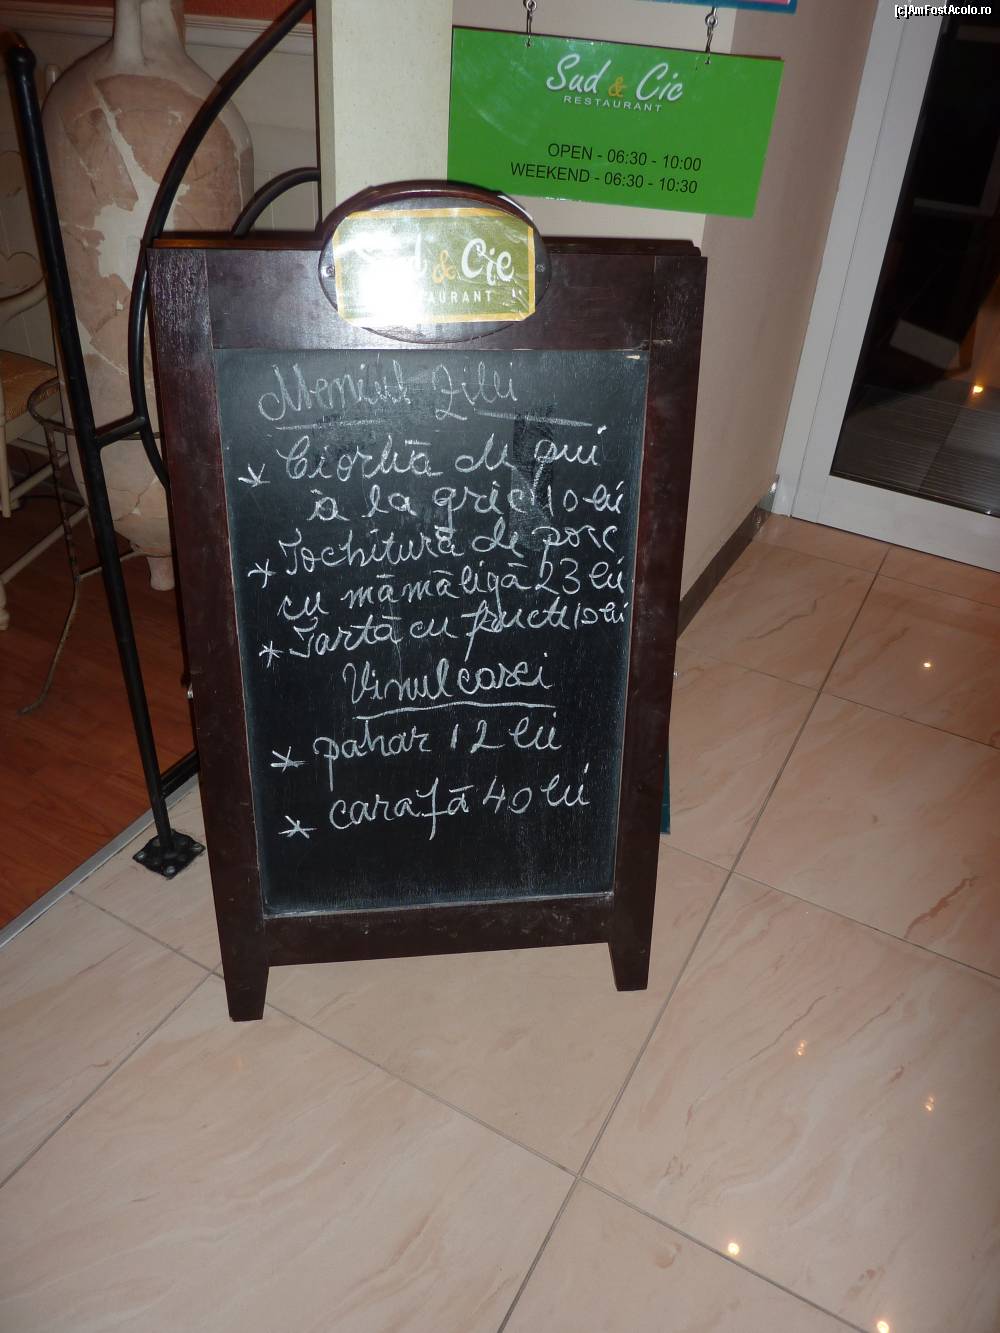 [c]AmFostAcolo.ro
Sud & Cic
RESTAURANT
OPEN - 06:30 - 10:00
WEEKEND - 06:30 - 10:30
& Cic
Meniul Zilei
* Ciorbă de pui
à la grec 10 lei
* Tochitură de porc
cu mămăligă 23 lei
* Tartă cu fructe 10 lei
Vinul casei
* pahar 12 lei
* carafă 40 lei